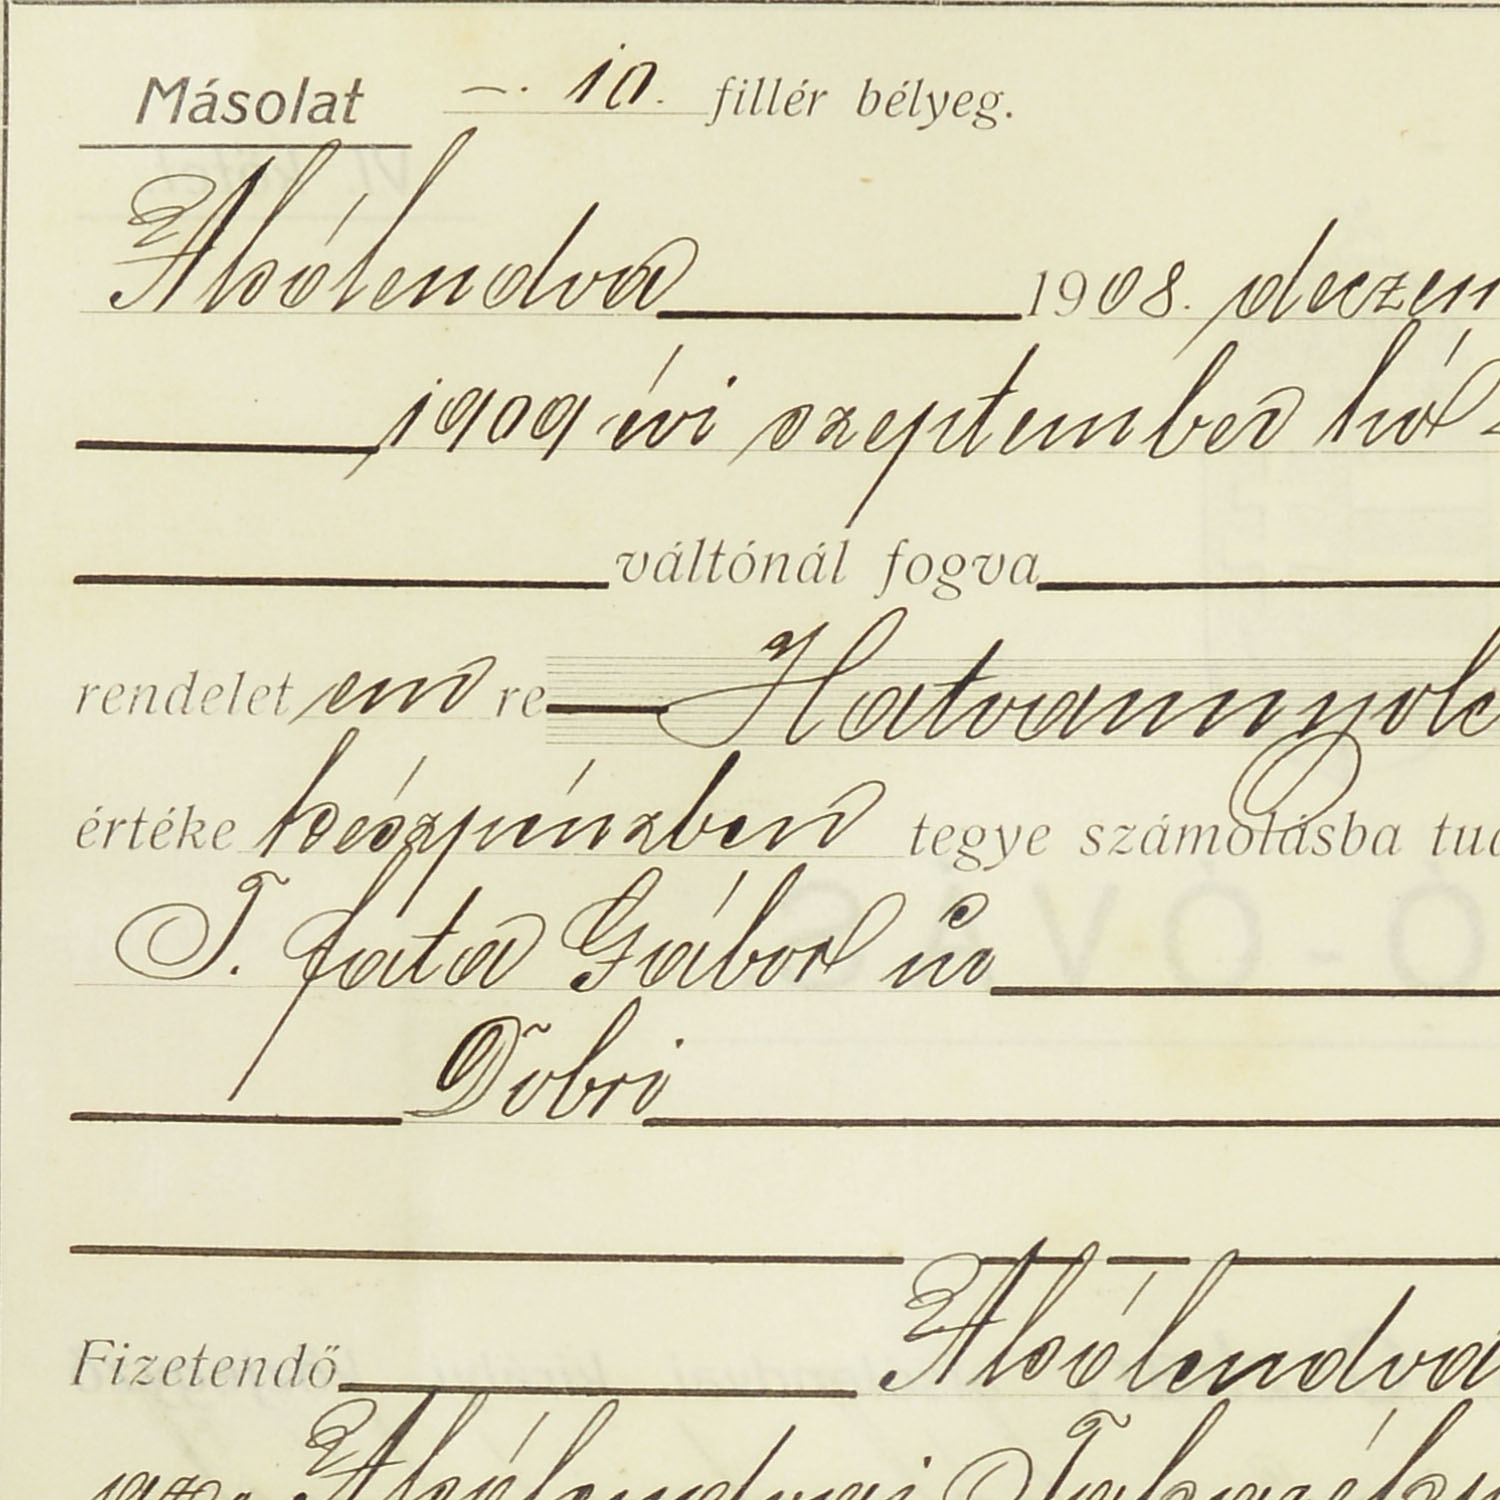 Másolat —. 10. fillér bélyeg.
Alsólendva 1908. deczem
1909 évi szeptember hó
váltónál fogva
rendelet em re Hatvannyolc
értéke készpénzben tegye számolásba tud
T. Fata Gábor úr
Dobri
Fizetendő Alsólendva
az Alsólendvai Takarék